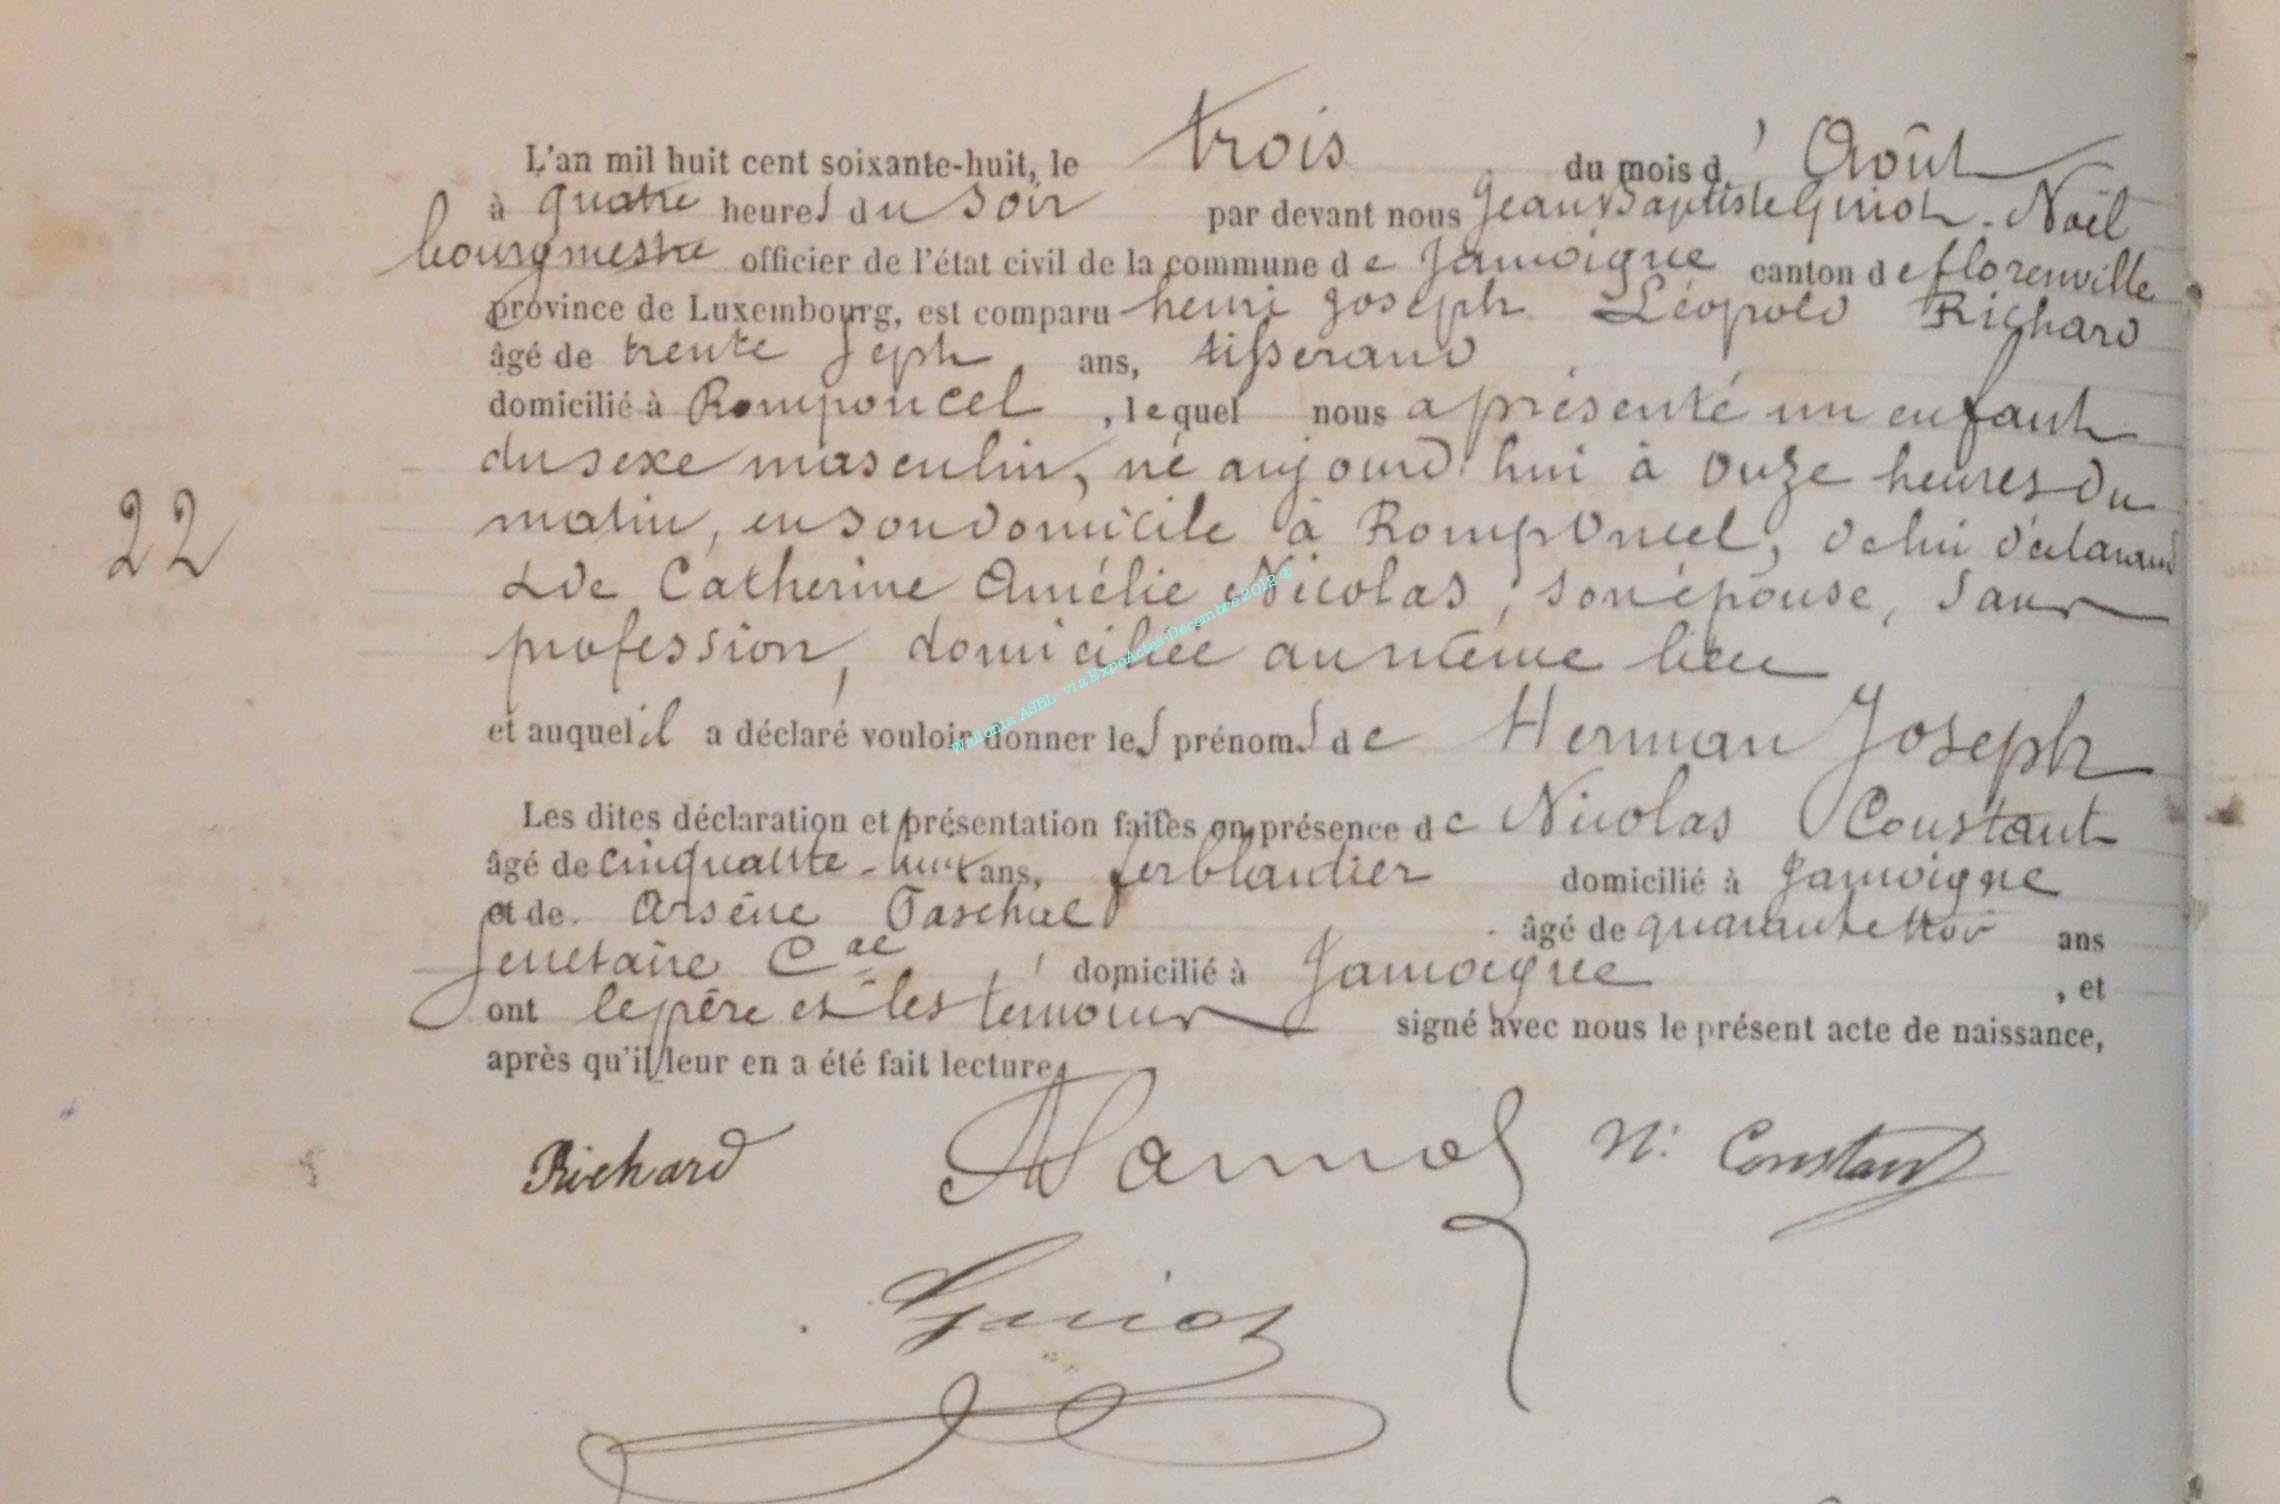 L'an mil huit cent soixante-huit, le trois du mois d' Août
à quatre heures du soir par devant nous Jean Baptiste Guiot-Noël
bourgmestre officier de l'état civil de la commune de Jamoigne canton de florenville
province de Luxembourg, est comparu henri Joseph Léopold Richard
âgé de trente sept ans, tisserand
domicilié à Romponcel, lequel nous a présenté un enfant
du sexe masculin, né aujourd'hui à onze heures du
matin, en son domicile à Romponcel, de lui déclarant
& de Catherine Amélie Nicolas, son épouse, sans
22
profession, domiciliée au même lieu
et auquel il a déclaré vouloir donner les prénoms de Herman Joseph
Les dites déclaration et présentation faites en présence de Nicolas Constant
âgé de cinquante-huit ans, ferblantier domicilié à Jamoigne
et de Arsène âgé de quarante trois ans
secrétaire Cal domicilié à Jamoigne, et
ont le père et les temoins signé avec nous le présent acte de naissance,
après qu'il leur en a été fait lecture.
Richard N. Constant
Guiot